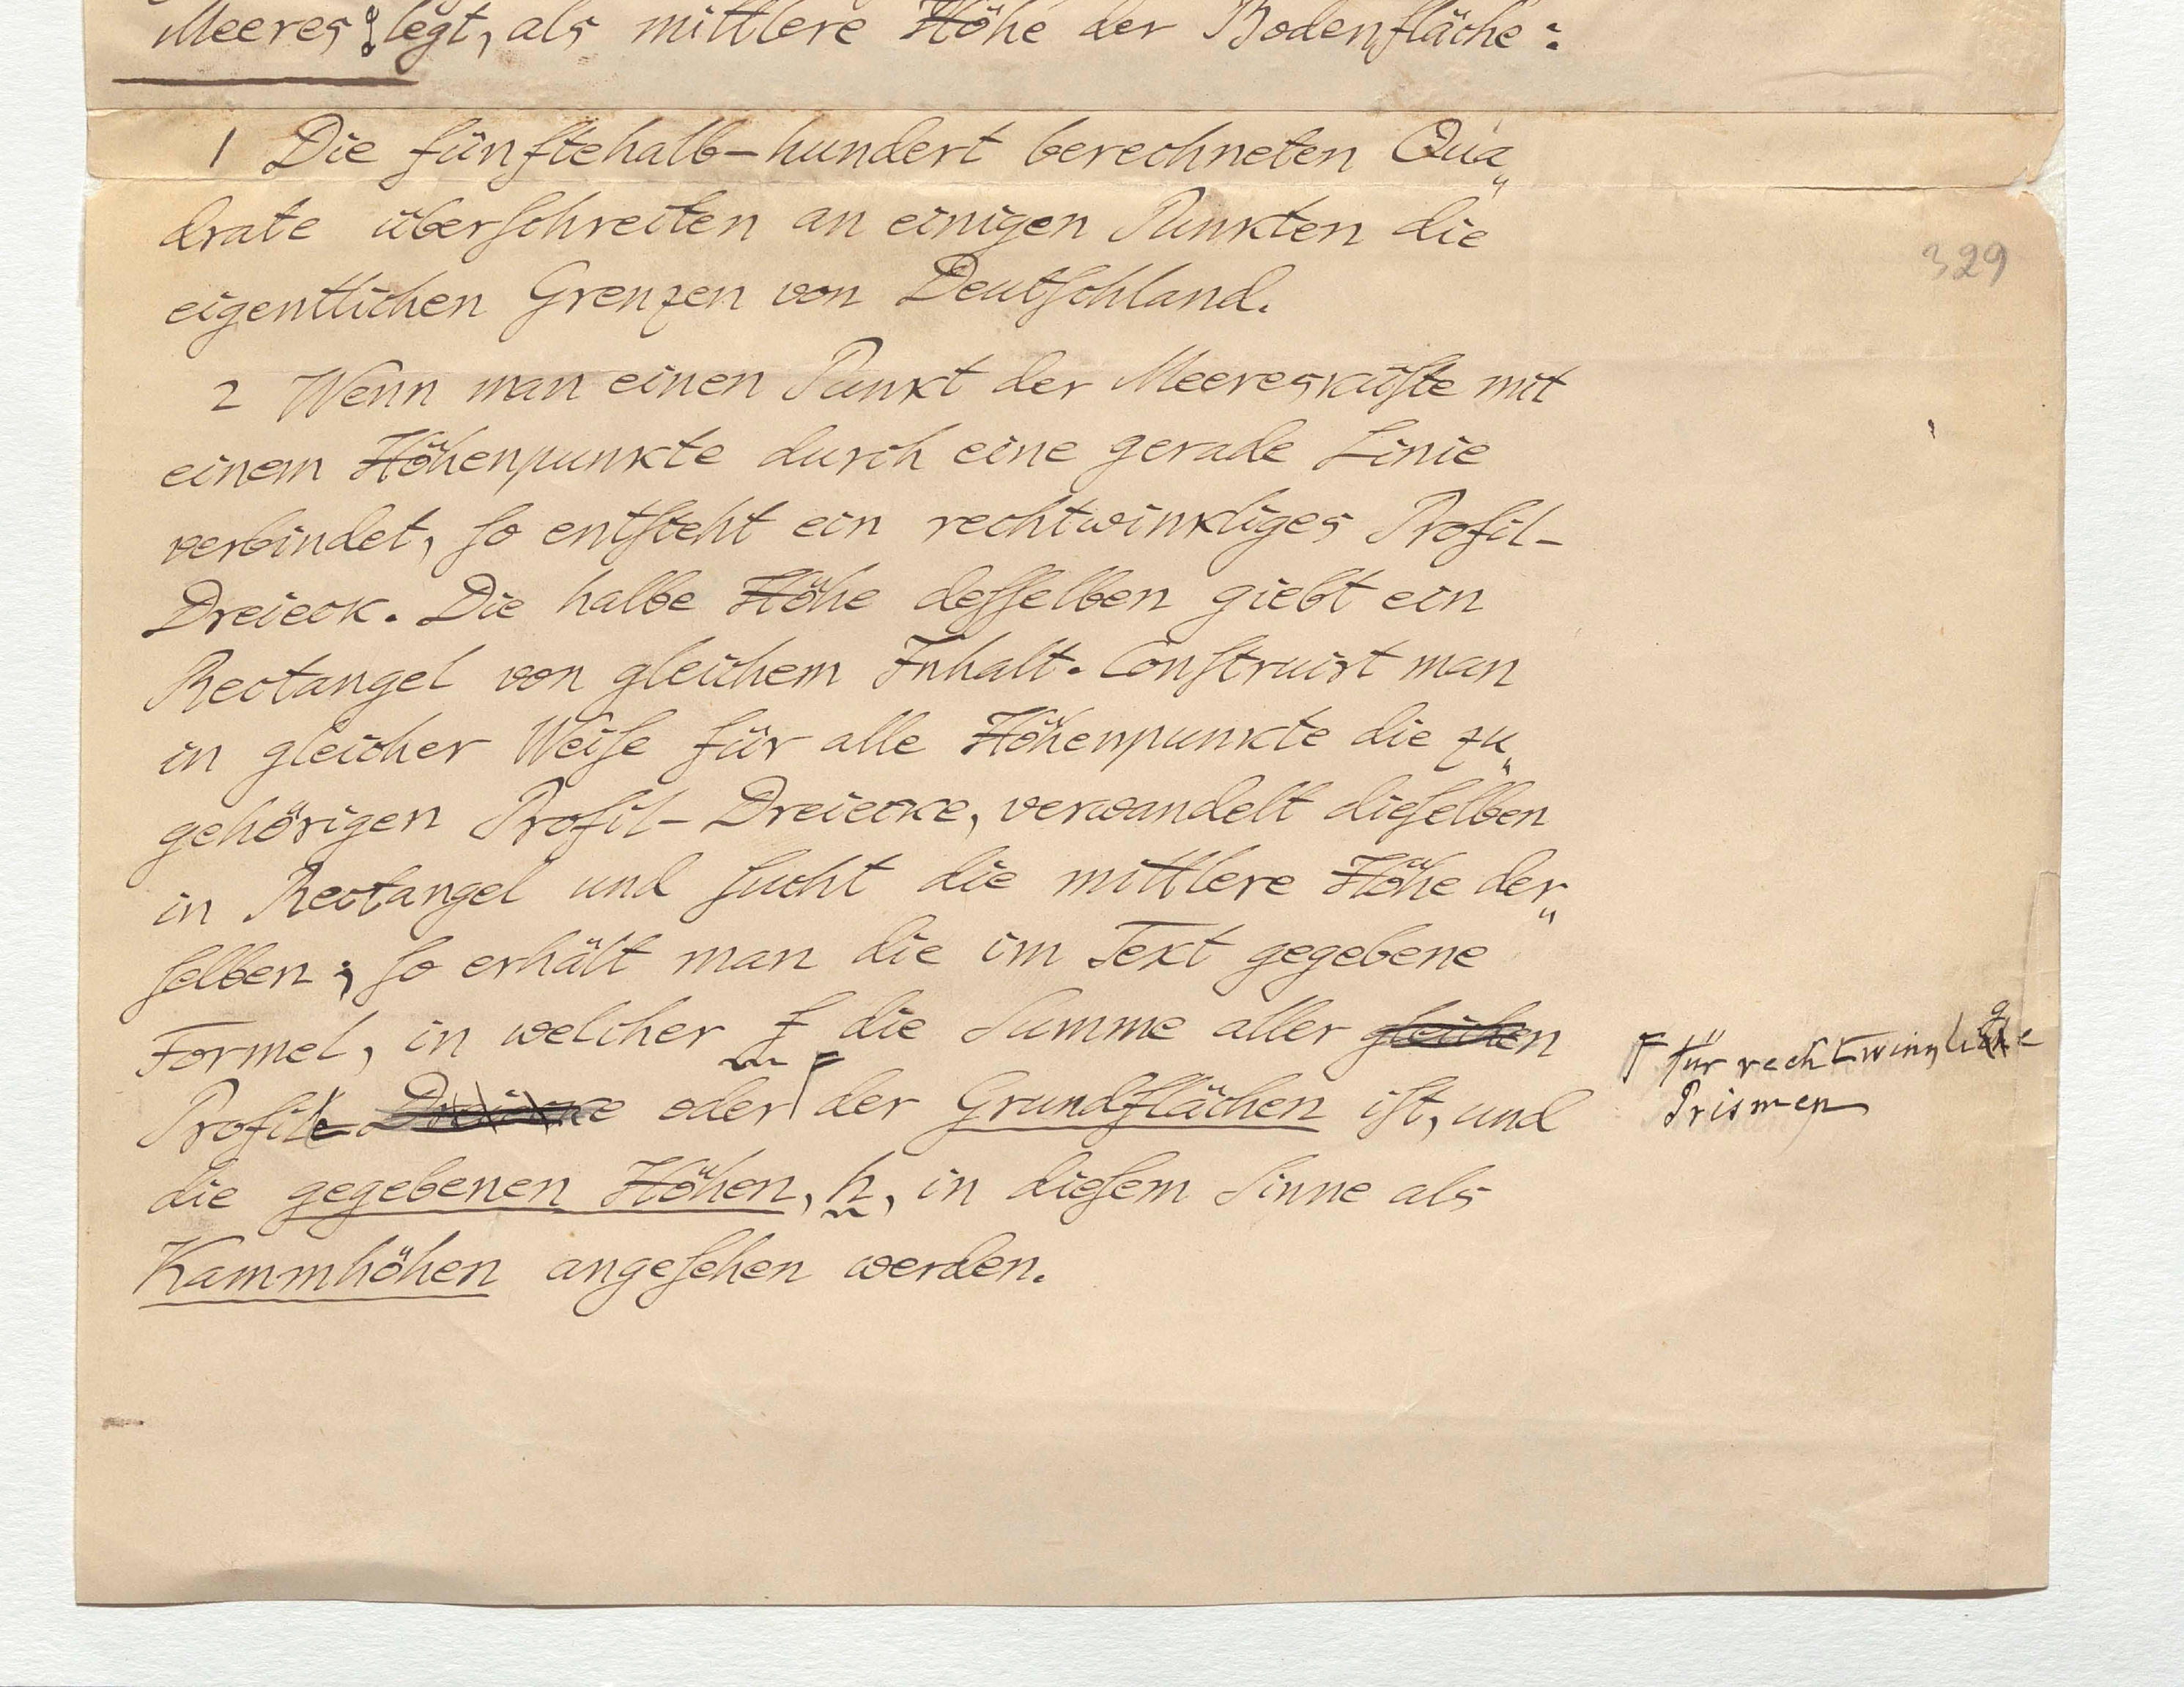 Meeres legt, als mittlere Höhe der Bodenfläche:
1 Die fünftehalb-hundert berechneten Qua„
drate überſchreiten an einigen Punkten die
eigentlichen Grenzen von Deutſchland.
329
2 Wenn man einen Punkt der Meeresküſte mit
einem Höhenpunkte durch eine gerade Linie
verbindet, ſo entſteht ein rechtwinkliges Profil-
Dreieck. Die halbe Höhe deſſelben giebt ein
Rectangel von gleichem Inhalt. Conſtruirt man
in gleicher Weiſe für alle Höhenpunkte die zu„
gehörigen Profil-Dreiecke, verwandelt dieſelben
in Rectangel und ſucht die mittlere Höhe der„
ſelben; ſo erhält man die im Text gegebene
Formel, in welcher f die Summe aller gleichen
Profile Dreiecke oder der Grundflächen iſt, und
die gegebenen Höhen, h, in dieſem Sinne als
Kammhöhen angeſehen werden.
für rechtwinglige
Prismen